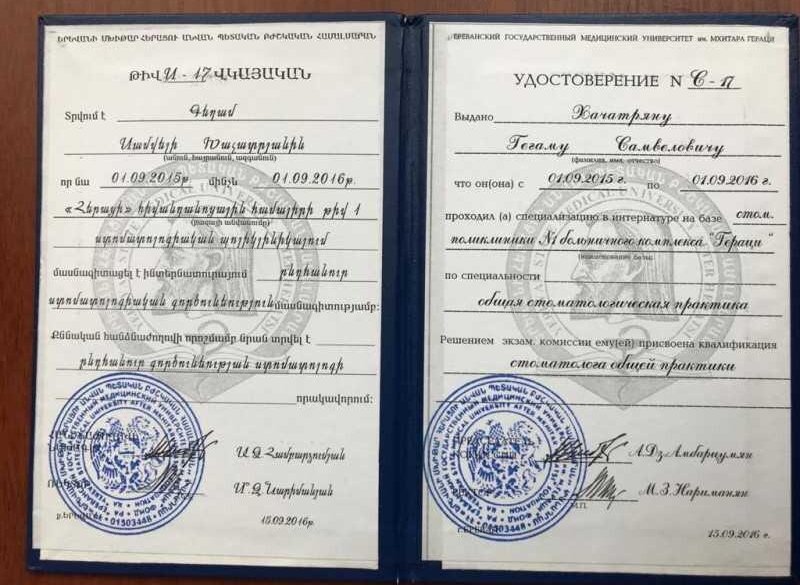 ԵՐԵՎԱՆԻ ՄԽԻԹԱՐ ՀԵՐԱՑՈՒ ԱՆՎԱՆ ՊԵՏԱԿԱՆ ԲԺՇԿԱԿԱՆ ՀԱՄԱԼՍԱՐԱՆ
ԹԻՎ Ս - 17 ՎԿԱՅԱԿԱՆ
Տրվում է Գեղամ
Սամվելի Խաչատրյանին
(անուն, հայրանուն, ազգանուն)
որ նա 01.09.2015թ մինչև 01.09.2016թ.
«Հերացի» հիվանդանոցային համալիրի թիվ 1
(բազայի անվանումը)
ստոմատոլոգիական պոլիկլինիկայում
մասնագիտացել է ինտերնատուրայում ընդհանուր
ստոմատոլոգիական գործունեություն մասնագիտությամբ:
Քննական հանձնաժողովի որոշմամբ նրան տրվել է
ընդհանուր գործունեության ստոմատոլոգի
որակավորում:
Ա.Ձ.Համբարձումյան
Մ.Զ.Նարիմանյան
15.09.2016թ.
ЕРЕВАНСКИЙ ГОСУДАРСТВЕННЫЙ МЕДИЦИНСКИЙ УНИВЕРСИТЕТ им. МХИТАРА ГЕРАЦИ
УДОСТОВЕРЕНИЕ N С-17
Выдано Хачатряну
Гегаму Самвеловичу
(фамилия, имя, отчество)
что он(она) с 01.09.2015 г. по 01.09.2016 г.
проходил (а) специализацию в интернатуре на базе стом.
поликлиники N1 больничного комплекса "Гераци"
(наименование базы)
по специальности
общая стоматологическая практика
Решением экзам. комиссии ему(ей) присвоена квалификация
стоматолога общей практики
А.Дз.Амбарцумян
М.З.Нариманян
М.П.
15.09.2016